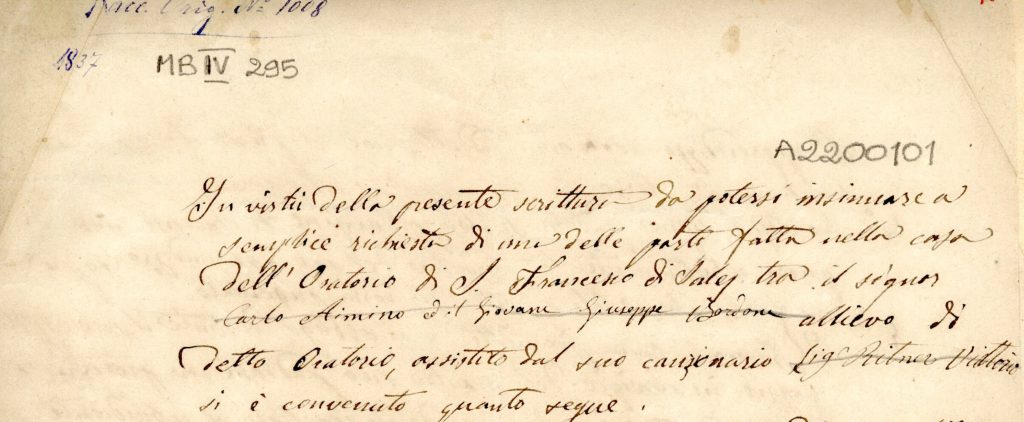 Racc. Orig. Nº 1008
1837
MB IV 295
A2200101
In virtù della presente scrittura da potersi insinuare a
semplice richiesta di una delle parti fatta nella casa
dell'Oratorio di S. Francesco di Sales tra il signor
Carlo Aimino ed il Giovane Giuseppe Bordone allievo di
detto Oratorio, assistito dal suo cauzionario sigr Ritner Vittorio
si è convenuto quanto segue.